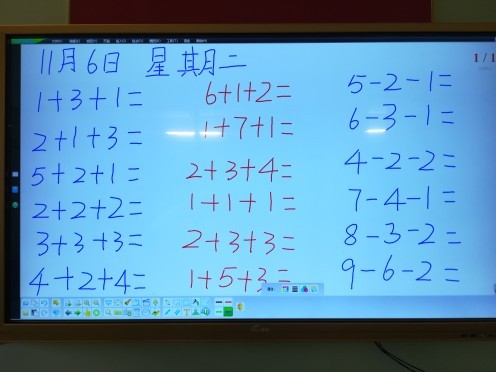 11月6日 星期二
1/1
1+3+1= 6+1+2= 5-2-1=
2+1+3= 1+7+1= 6-3-1=
5+2+1= 2+3+4= 4-2-2=
2+2+2= 1+1+1= 7-4-1=
3+3+3= 2+3+3= 8-3-2=
4+2+4= 1+5+3= 9-6-2=